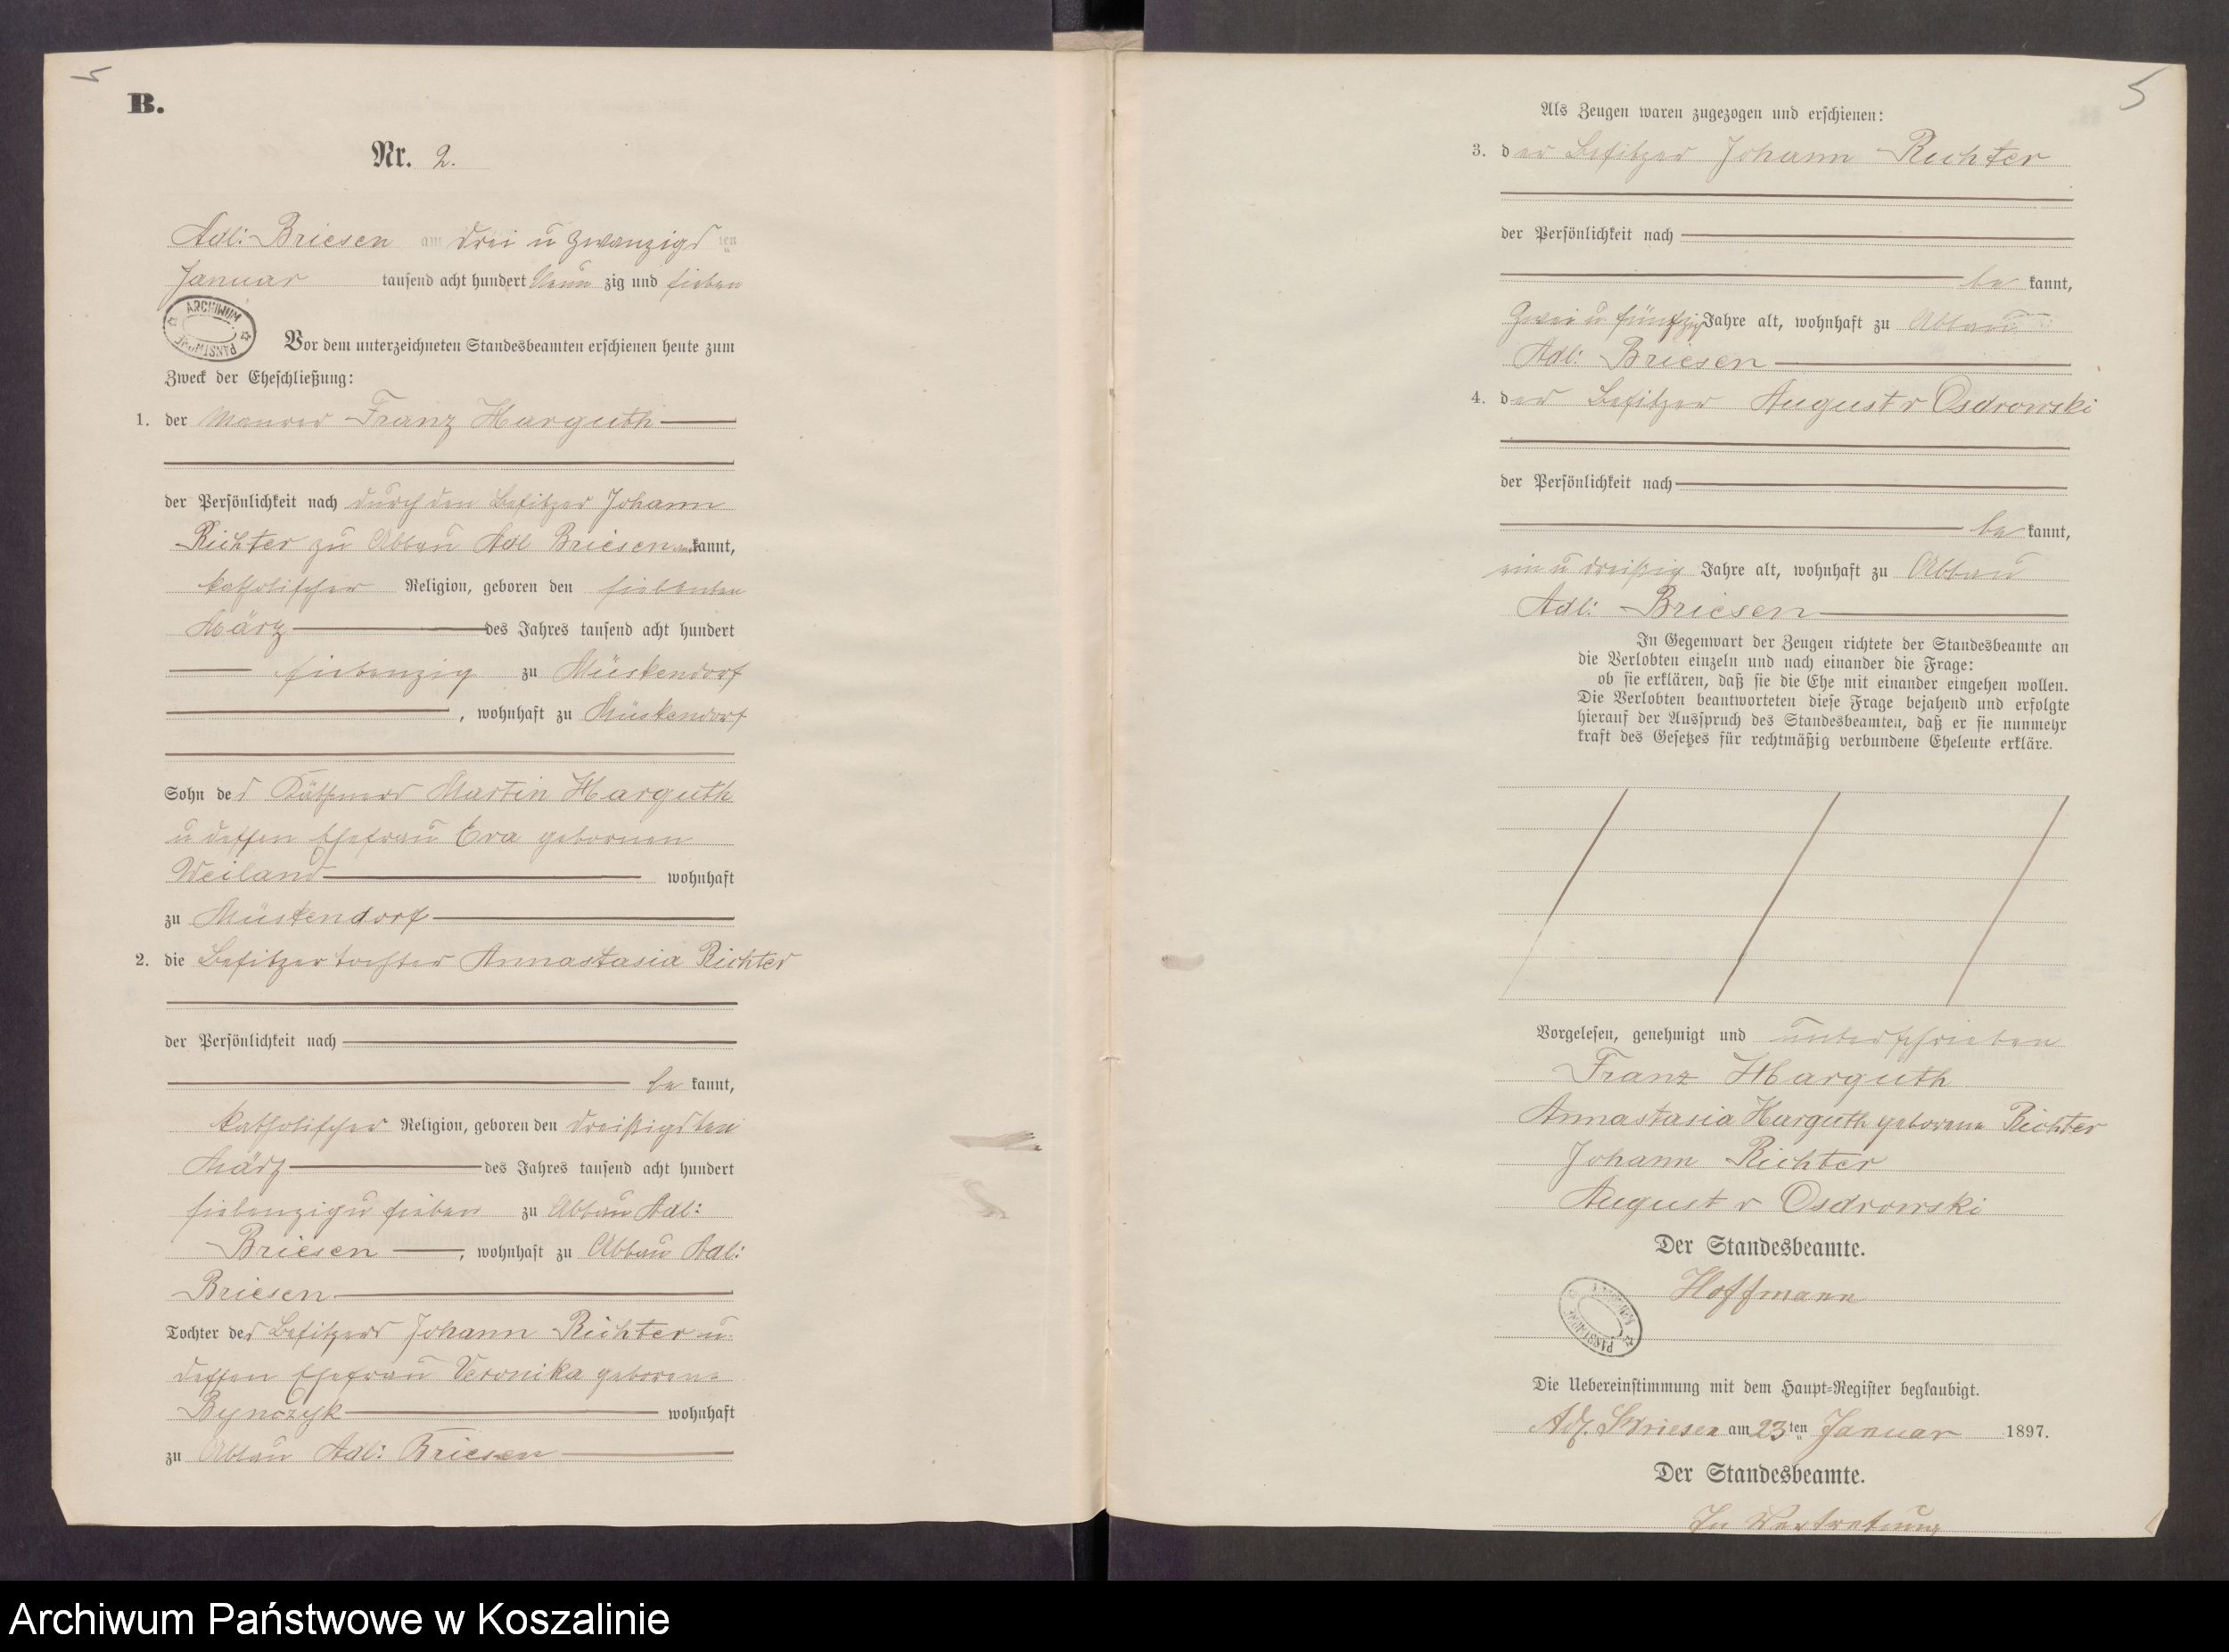 5
B.
Nr. 2.
Adl: Briesen am drei u zwanzigs ten
Januar tausend acht hundert Neun zig und sieben
ARCHIWUM PAŃSTWOWE
Vor dem unterzeichneten Standesbeamten erschienen heute zum
Zweck der Eheschließung:
1. der Maurer Franz Harguth
der Persönlichkeit nach durch den Besitzer Johann
Richter zu Abbau Adl Briesen kannt,
katholischer Religion, geboren den siebenten
März des Jahres tausend acht hundert
siebenzig zu Müskendorf
, wohnhaft zu Müskendorf
Sohn des Käthners Martin Harguth
u dessen Ehefrau Eva gebornen
Weiland wohnhaft
zu Müskendorf
2. die Besitzertochter Annastasia Richter
der Persönlichkeit nach
be kannt,
katholischer Religion, geboren den dreißigsten
März des Jahres tausend acht hundert
siebenzig u sieben zu Abbau Adl:
Briesen , wohnhaft zu Abbau Adl:
Briesen
Tochter des Besitzers Johann Richter u
dessen Ehefrau Veronika geboren=
Bynczyk wohnhaft
zu Abbau Adl: Briesen
5
Als Zeugen waren zugezogen und erschienen:
3. der Besitzer Johann Richter
der Persönlichkeit nach
be kannt,
zwei u fünfzig Jahre alt, wohnhaft zu Abbau
Adl: Briesen
4. der Besitzer August v Osdrowski
der Persönlichkeit nach
be kannt,
ein u dreißig Jahre alt, wohnhaft zu Abbau
Adl: Briesen
In Gegenwart der Zeugen richtete der Standesbeamte an
die Verlobten einzeln und nach einander die Frage:
ob sie erklären, daß sie die Ehe mit einander eingehen wollen.
Die Verlobten beantworteten diese Frage bejahend und erfolgte
hierauf der Ausspruch des Standesbeamten, daß er sie nunmehr
kraft des Gesetzes für rechtmäßig verbundene Eheleute erkläre.
Vorgelesen, genehmigt und unterschrieben
Franz Harguth
Annastasia Harguth geborene Richter
Johann Richter
August v Osdrowski
Der Standesbeamte.
Hoffmann
Die Uebereinstimmung mit dem Haupt=Register beglaubigt.
Adl. Briesen am 23 ten Januar 1897.
Der Standesbeamte.
In Vertretung
Archiwum Państwowe w Koszalinie